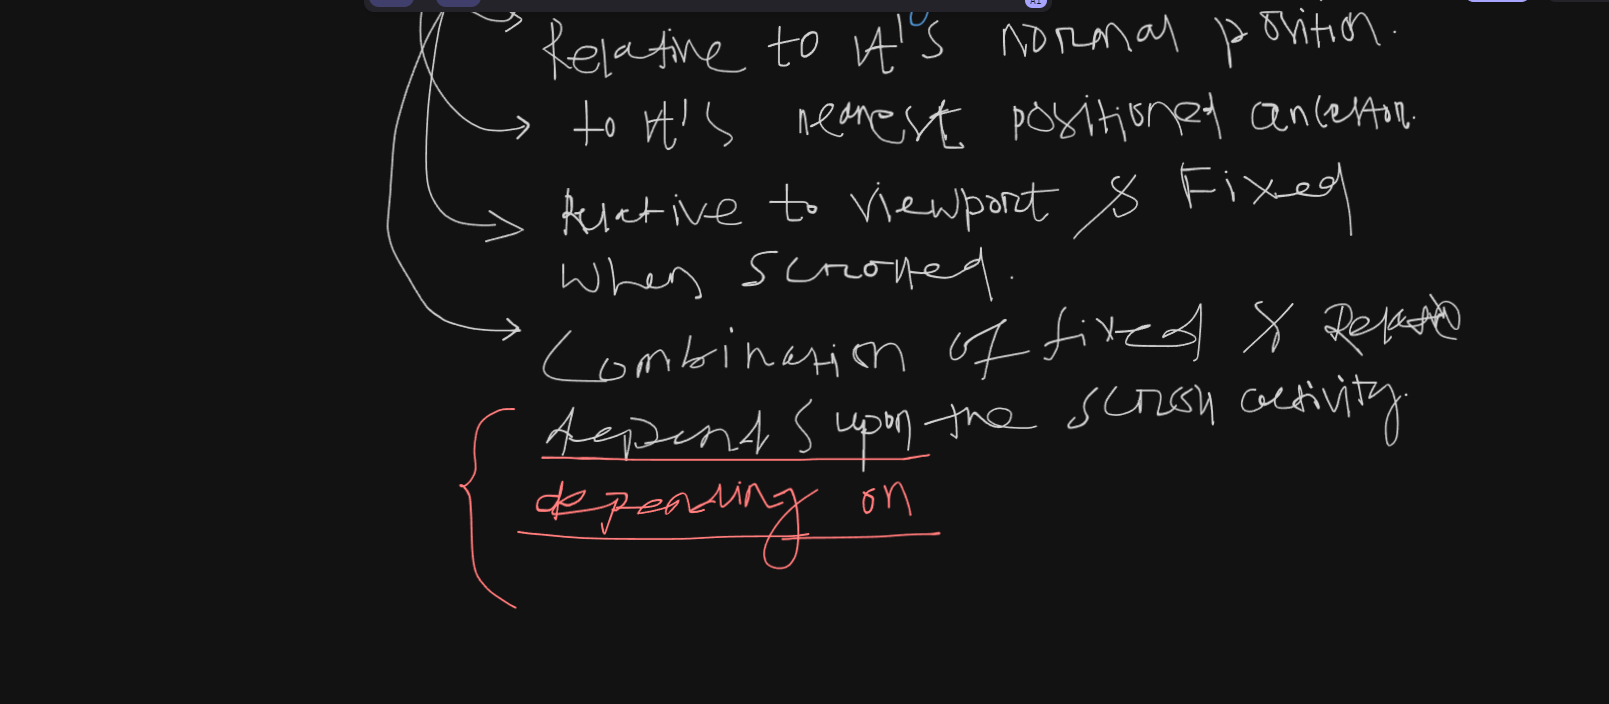 Relative to it's normal position.
to it's nearest positioned ancestor.
Relative to viewport & Fixed
when scrolled.
Combination of fixed & Relative
depends upon the scroll activity.
depending on